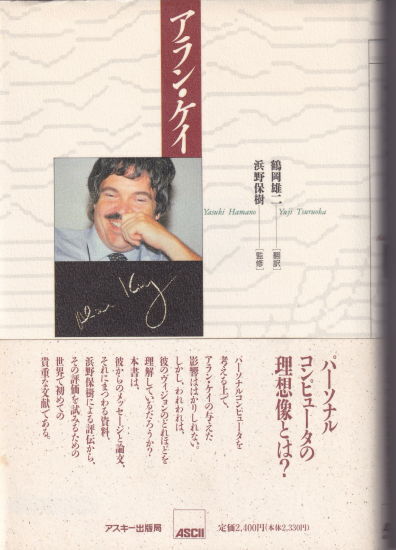 アラン・ケイ
鶴岡雄二
Yuji Tsuruoka
[翻訳]
浜野保樹
Yasuki Hamano
[監修]
Alan Kay
パーソナル
コンピュータの
理想像とは?
パーソナルコンピュータを
考える上で、
アラン・ケイの与えた
影響ははかりしれない。
しかし、われわれは、
彼のヴィジョンのどれほどを
理解しているだろうか?
本書は、
彼からのメッセージと論文、
それにまつわる資料、
浜野保樹による評伝から、
その評価を試みるための
世界で初めての
貴重な文献である。
アスキー出版局
ASCII
定価2,400円(本体2,330円)